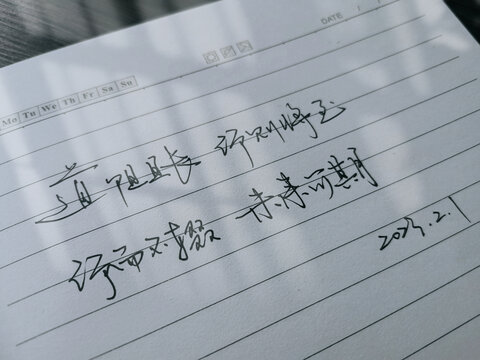 DATE / /
Mo Tu We Th Fr Sa Su
道阻且长 行则将至
行而不辍 未来可期
2023.2.1